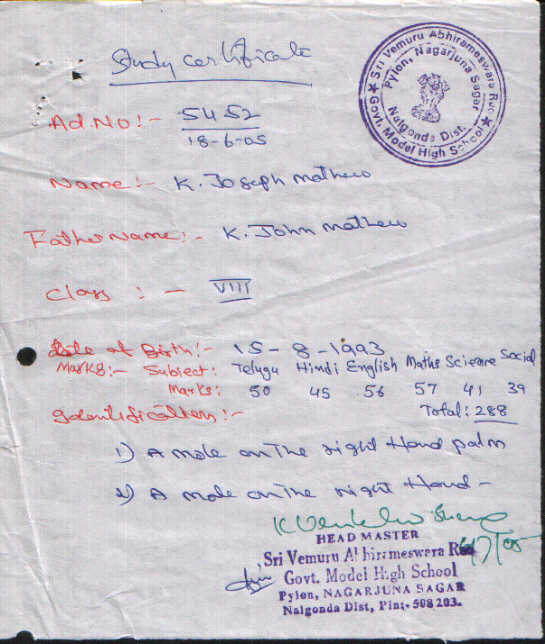 Study certificate
★ Sri Vemuru Abhirameswara Rao ★ Govt. Model High School
Pylon, Nagarjuna Sagar
Nalgonda Dist.
Ad.No:- 5452
18-6-05
Name:- K. Joseph mathew
Father Name:- K. John mathew
Class :- VIII
date of Birth:- 15-8-1993
Marks:- Subject: Telugu Hindi English Maths Science Social
Marks: 50 45 56 57 41 39
Total: 288
Identification:-
1) A mole on The right Hand palm
2) A mole on The right Hand -
HEAD MASTER
Sri Vemuru Abhirameswara Rao
Govt. Model High School
Pylon, NAGARJUNA SAGAR
Nalgonda Dist, Pin:- 508 203.